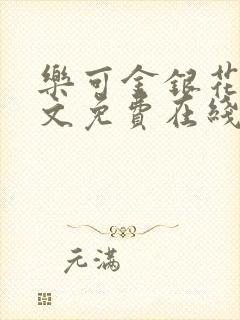 樂可金銀花
文免費在綫
元滿